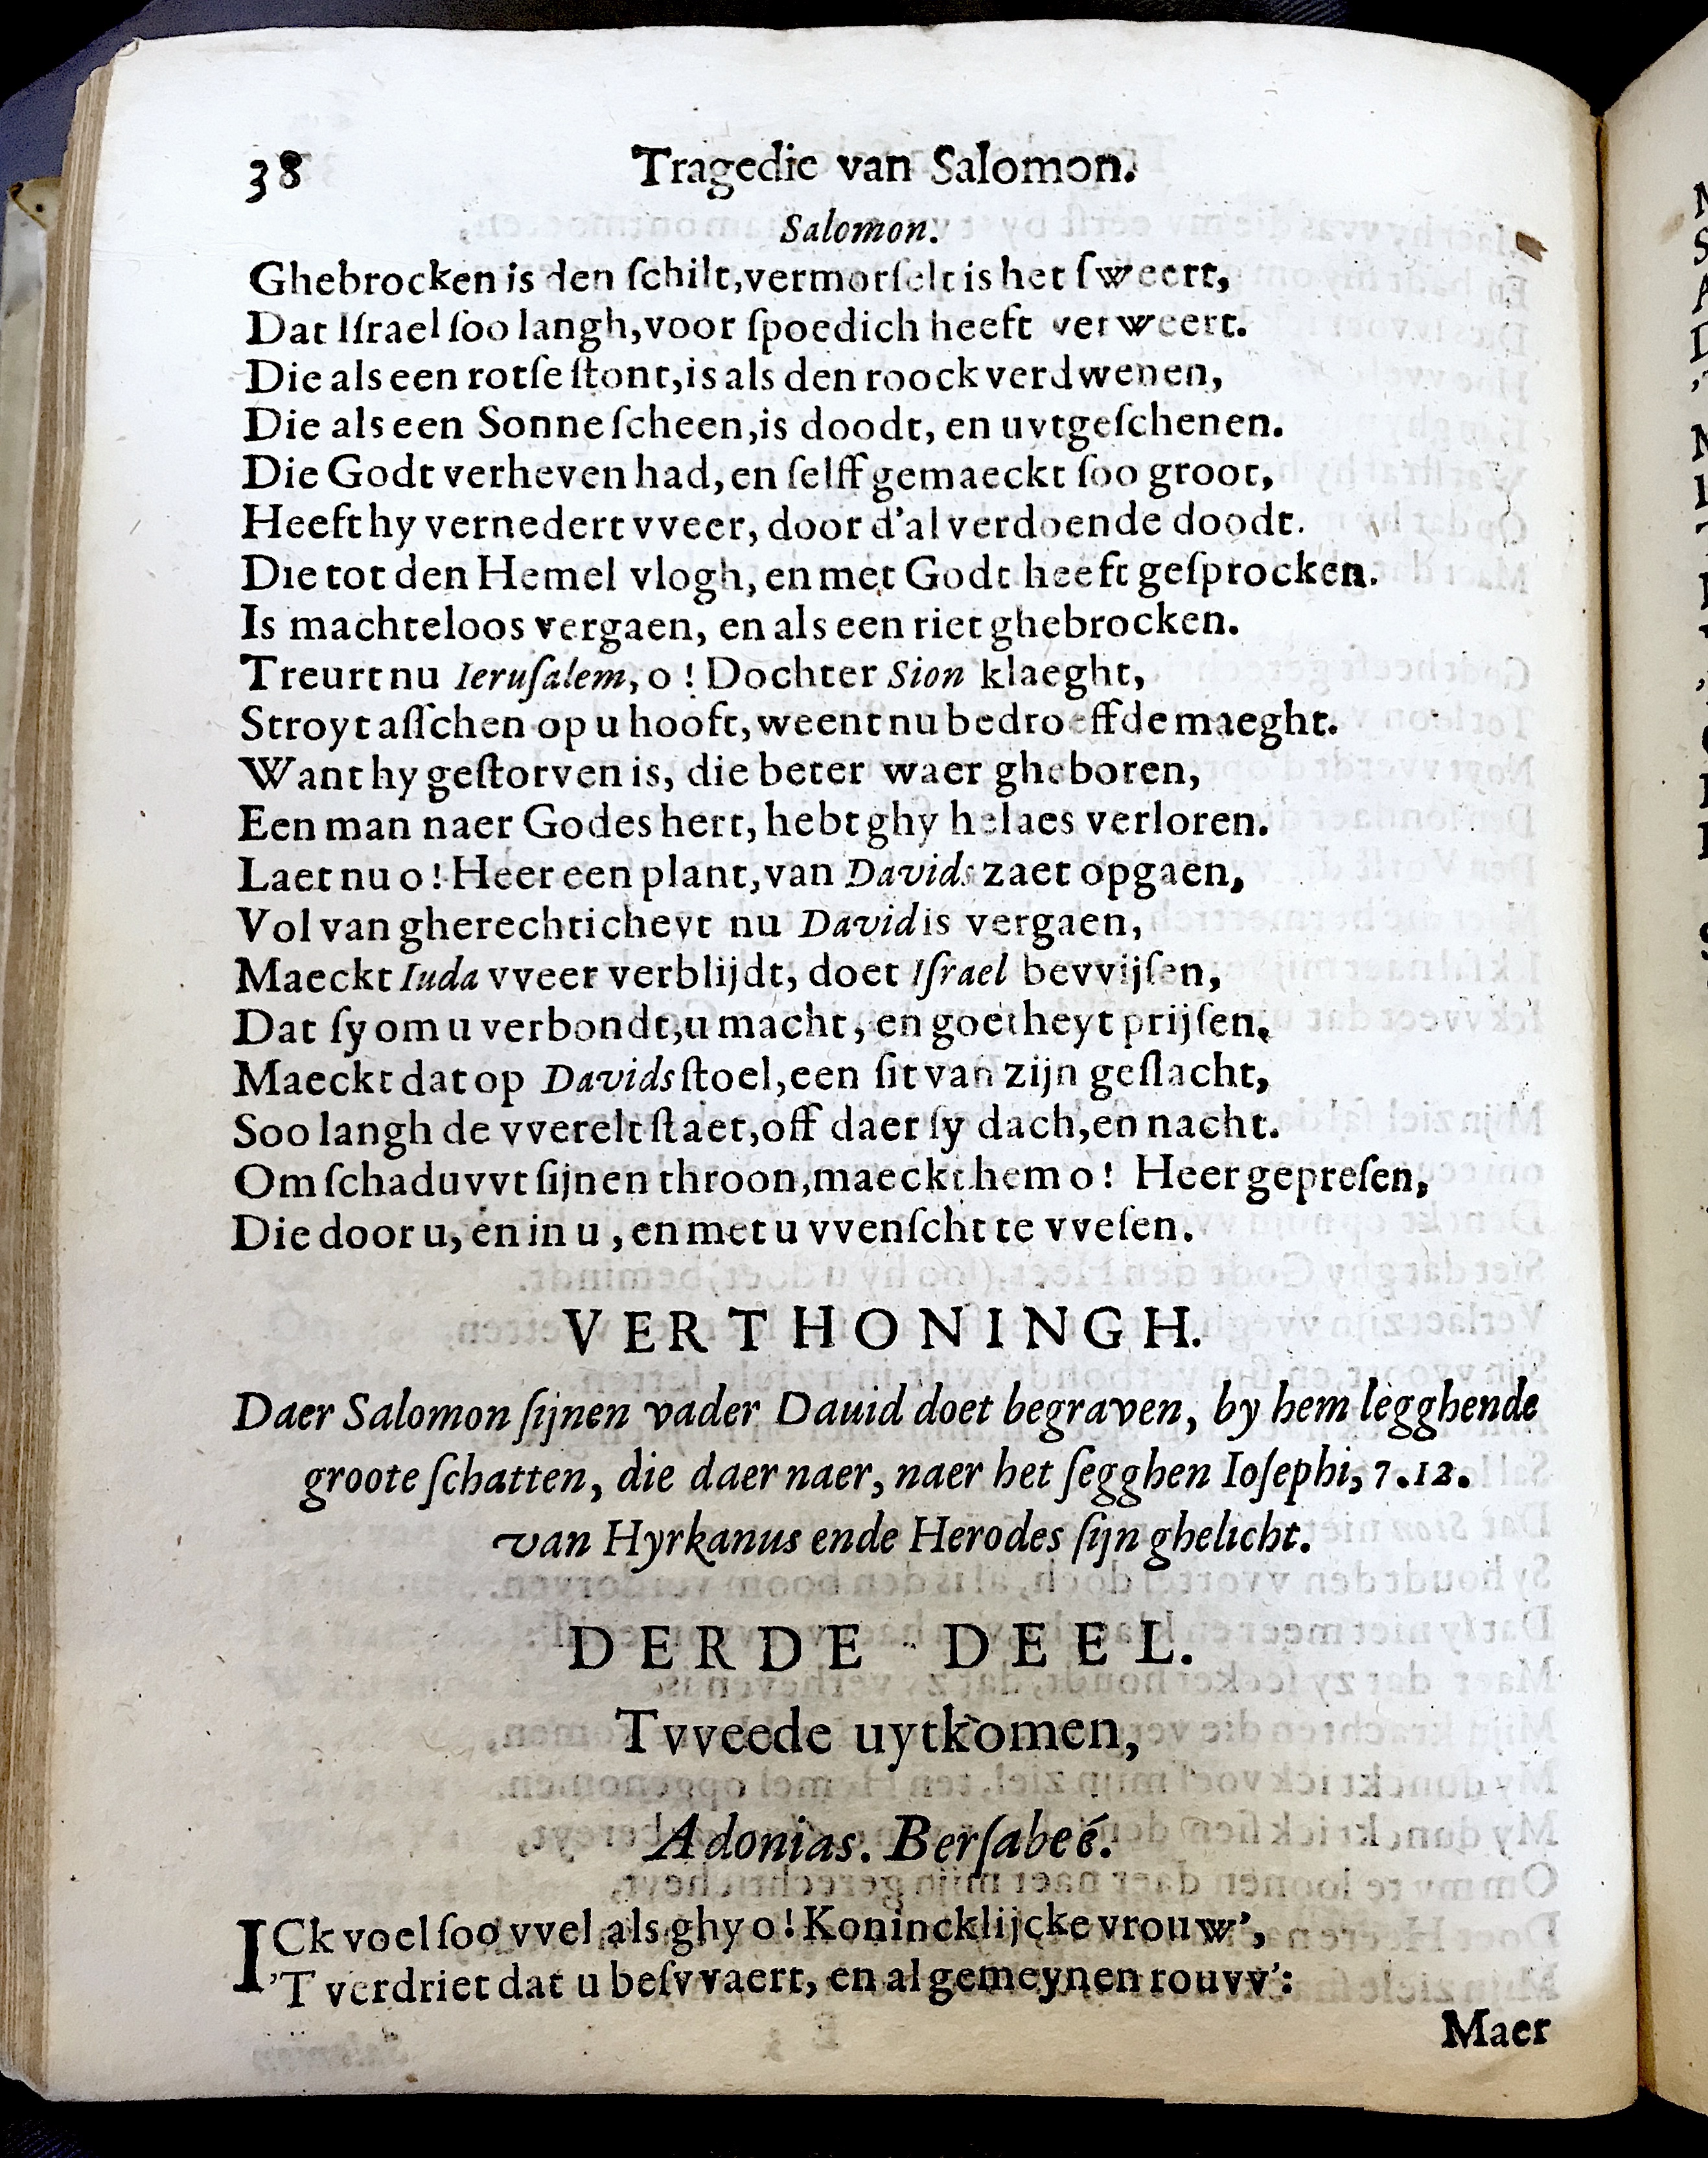 38 Tragedie van Salomon.
Salomon.
Ghebrocken is den ſchilt, vermorſelt is het ſweert,
Dat Iſrael ſoo langh, voor ſpoedich heeft verweert.
Die als een rotſe ſtont, is als den roock verdwenen,
Die als een Sonne ſcheen, is doodt, en uvtgeſchenen.
Die Godt verheven had, en ſelff gemaeckt ſoo groot,
Heeft hy vernedert vveer, door d'al verdoende doodt.
Die tot den Hemel vlogh, en met Godt heeft geſprocken.
Is machteloos vergaen, en als een riet ghebrocken.
Treurt nu Ieruſalem, o ! Dochter Sion klaeght,
Stroyt aſſchen op u hooft, weent nu bedroeffde maeght.
Want hy geſtorven is, die beter waer gheboren,
Een man naer Godes hert, hebt ghy helaes verloren.
Laet nu o ! Heer een plant, van Davids zaet opgaen,
Vol van gherechticheyt nu David is vergaen,
Maeckt Iuda vveer verblijdt, doet Iſrael bevvijſen,
Dat ſy om u verbondt, u macht, en goetheyt prijſen,
Maeckt dat op Davids ſtoel, een ſit van zijn geſlacht,
Soo langh de vverelt ſtaet, off daer ſy dach, en nacht.
Om ſchaduvvt ſijnen throon, maeckt hem o ! Heer gepreſen,
Die door u, en in u, en met u vvenſcht te vveſen.
VERTHONINGH.
Daer Salomon ſijnen vader Dauid doet begraven, by hem legghende
groote ſchatten, die daer naer, naer het ſegghen Ioſephi, 7.12.
van Hyrkanus ende Herodes ſijn ghelicht.
DERDE DEEL.
Tvveede uytkomen,
Adonias. Berſabeé.
ICk voel ſoo vvel als ghy o ! Konincklijcke vrouw',
'T verdriet dat u beſvvaert, en al gemeynen rouvv':
Maer